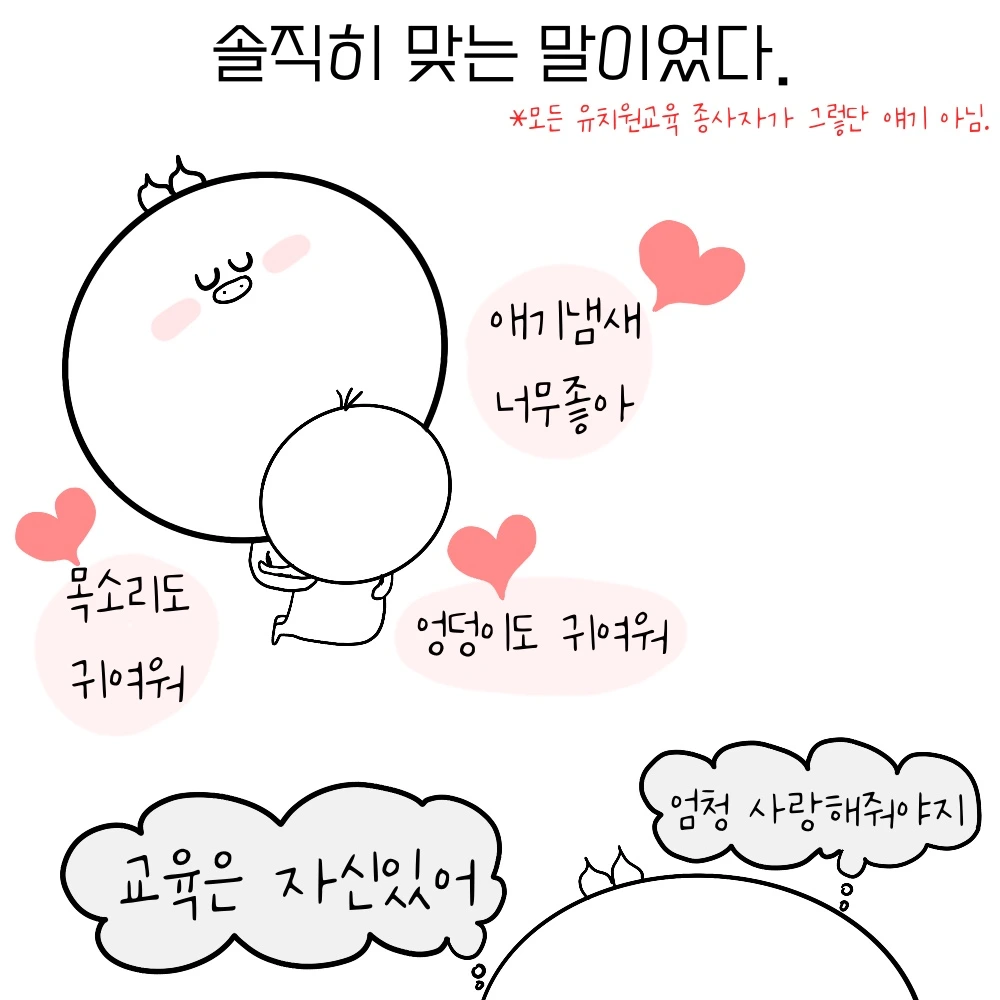 솔직히 맞는 말이었다.
*모든 유치원교육 종사자가 그렇단 얘기 아님.
애기냄새
너무좋아
목소리도
귀여워
엉덩이도 귀여워
엄청 사랑해줘야지
교육은 자신있어